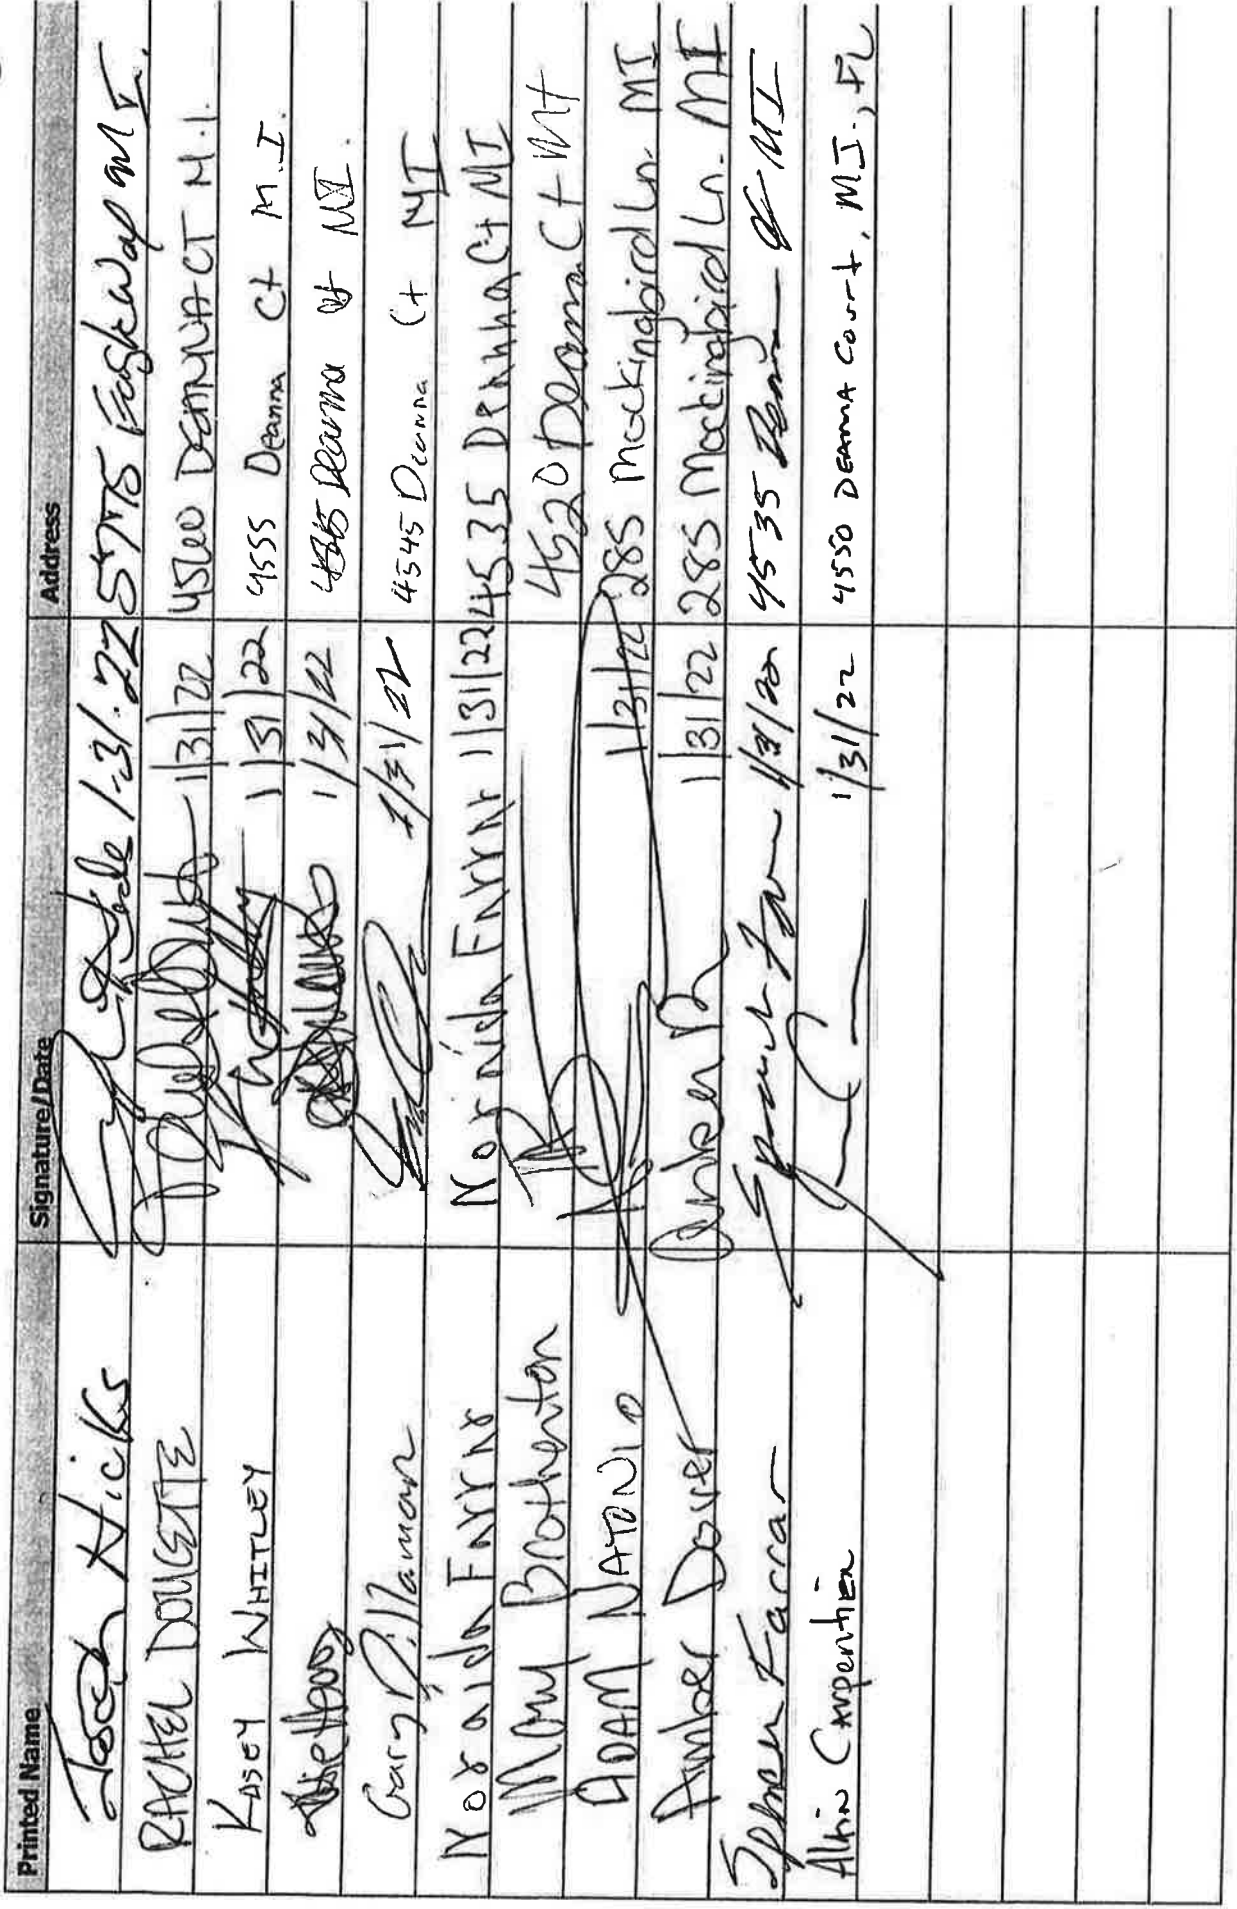 Printed Name Signature/Date Address
Joseph Hicks 1.31.22 5775 Eagle Way M I.
RACHEL DOUCETTE 1/31/22 4560 DEANNA CT M.I.
KASEY WHITLEY 1/31/22 4555 Deanna Ct M.I.
1/31/22 Deanna Ct MI.
Gary Dillaman 1/31/22 4545 Deanna Ct MI
Noraida Farra Noraida Farra 1/31/22 4535 Deanna Ct MI
Mary Brotherton 4520 Deanna Ct MI
ADAM NATONIO 1/31/22 285 Mockingbird Ln. MI
Amber Dover Amber D 1/31/22 285 Mockingbird Ln. MI
Spencer Farrar 1/31/22 4535 Deanna Ct MI
Alvin CARPENTIER 1/31/22 4550 DEANNA Court, M.I., FL